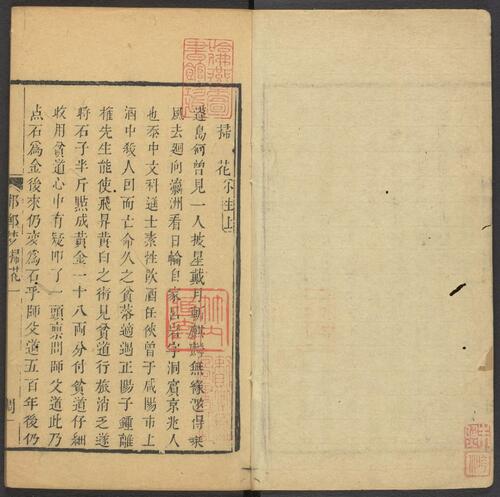 掃花 外生上
蓬島何曾見一人披星戴月斬麒麟無緣邀得乘
風去廻向瀛洲看日輪自家呂岩字洞賓京兆人
也忝中文科進士素性飲酒任俠曾于咸陽市上
酒中殺人因而亡命久之貧落適遇正陽子鍾離
權先生能使飛昇黄白之術見貧道行旅消乏遂
將石子半斤點成黄金一十八兩分付貧道仔細
收用貧道心中有疑叩了一頭禀問師父道此乃
点石爲金後來仍變爲石乎師父道五百年後仍
邯鄲夢掃花